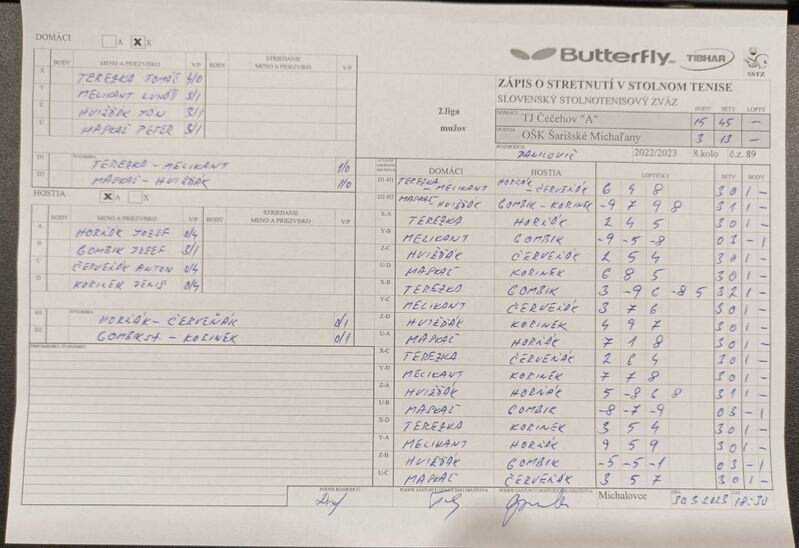 DOMÁCI A X X
Butterfly TIBHAR SSTZ
BODY MENO A PRIEZVISKO V/P BODY STRIEDANIE MENO A PRIEZVISKO V/P
X TEREZKA TOMÁŠ 4/0
Y MELIKANT LUKÁŠ 3/1
Z HVIŽĎÁK JÁN 3/1
U MASKAĽ PETER 3/1
ZÁPIS O STRETNUTÍ V STOLNOM TENISE
SLOVENSKÝ STOLNOTENISOVÝ ZVÄZ
2.liga mužov
DOMÁCI TJ Čečehov "A" BODY 15 SETY 45 LOPTY -
HOSTIA OŠK Šarišské Michaľany 3 13 -
ROZHODCA DANILOVIČ 2022/2023 8.kolo č.z. 89
D1 ŠTVORHRA TEREZKA - MELIKANT 1/0
D2 MASKAĽ - HVIŽĎÁK 1/0
HOSTIA A X X
BODY MENO A PRIEZVISKO V/P BODY STRIEDANIE MENO A PRIEZVISKO V/P
A HORŇÁK JOZEF 0/4
B GOMBIK JOZEF 3/1
C ČERVEŇÁK ANTON 0/4
D KORINEK DENIS 0/4
H1 ŠTVORHRA HORŇÁK - ČERVEŇÁK 0/1
H2 GOMBIK ST. - KORINEK 0/1
PRIPOMIENKY, POZNÁMKY
DOMÁCI HOSTIA LOPTIČKY SETY BODY
D1-H1 TEREZKA - MELIKANT HORŇÁK - ČERVEŇÁK 6 4 8 3 0 1 -
D2-H2 MASKAĽ - HVIŽĎÁK GOMBIK - KORINEK -9 7 9 8 3 1 1 -
X-A TEREZKA HORŇÁK 2 4 5 3 0 1 -
Y-B MELIKANT GOMBIK -9 -5 -8 0 3 - 1
Z-C HVIŽĎÁK ČERVEŇÁK 2 5 4 3 0 1 -
U-D MASKAĽ KORINEK 6 8 5 3 0 1 -
X-B TEREZKA GOMBIK 3 -9 6 -8 5 3 2 1 -
Y-C MELIKANT ČERVEŇÁK 3 7 6 3 0 1 -
Z-D HVIŽĎÁK KORINEK 4 9 7 3 0 1 -
U-A MASKAĽ HORŇÁK 7 1 8 3 0 1 -
X-C TEREZKA ČERVEŇÁK 2 6 4 3 0 1 -
Y-D MELIKANT KORINEK 7 7 8 3 0 1 -
Z-A HVIŽĎÁK HORŇÁK 5 -8 6 8 3 1 1 -
U-B MASKAĽ GOMBIK -8 -7 -9 0 3 - 1
X-D TEREZKA KORINEK 3 5 4 3 0 1 -
Y-A MELIKANT HORŇÁK 9 5 9 3 0 1 -
Z-B HVIŽĎÁK GOMBIK -5 -5 -1 0 3 - 1
U-C MASKAĽ ČERVEŇÁK 3 5 7 3 0 1 -
PODPIS ROZHODCU PODPIS ZÁSTUPCU DOMÁCEHO DRUŽSTVA PODPIS ZÁSTUPCU HOSŤUJÚCEHO DRUŽSTVA
Michalovce DŇA 30.3.2023 ČAS 18:30